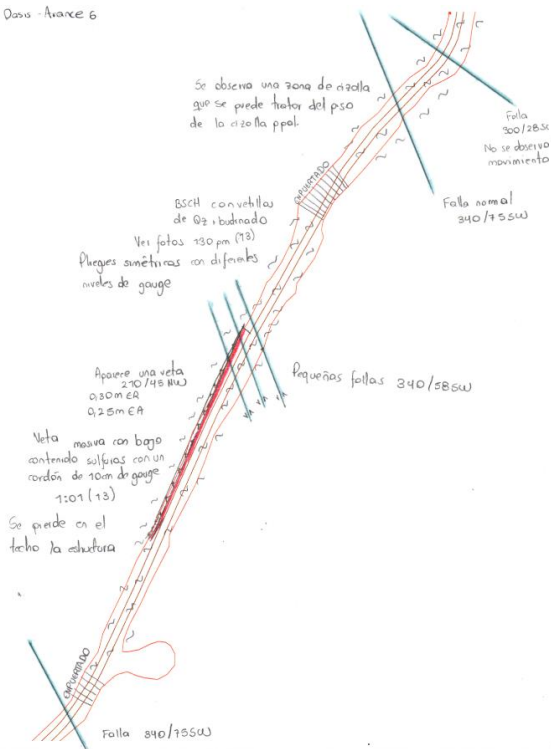 Oasis - Avance 6
Se observa una zona de cizalla
que se puede tratar del piso
de la cizalla ppal.
Falla
300/28SW
No se observa
movimiento
ENPUERTADO
Falla normal
340/75SW
BSCH con vetillas
de Qz budinado
Ver fotos 130 pm (13)
Pliegues simétricos con diferentes
niveles de gouge
Pequeñas fallas 340/58SW
Aparece una veta
210/45 NW
0,30m ER
0,25m EA
Veta masiva con bajo
contenido sulfuros con un
cordón de 10cm de gouge
1:01 (13)
Se pierde en el
techo la estructura
ENPUERTADO
Falla 340/75SW